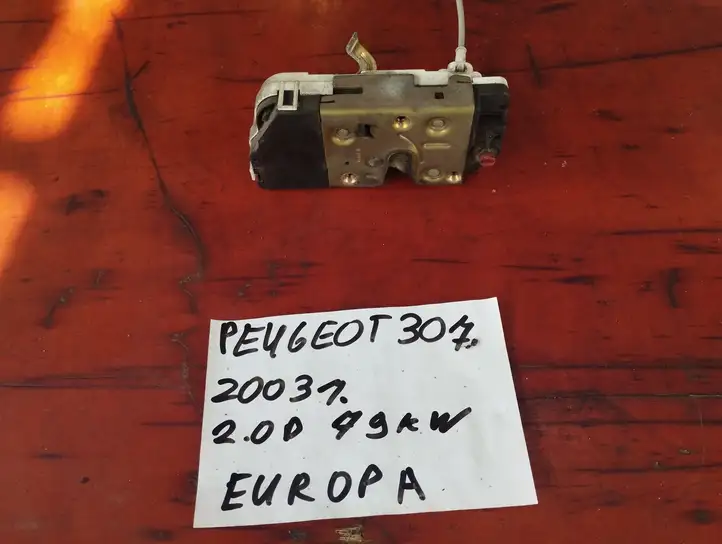 PEUGEOT 307.
2003г.
2.0D 79KW
EUROPA